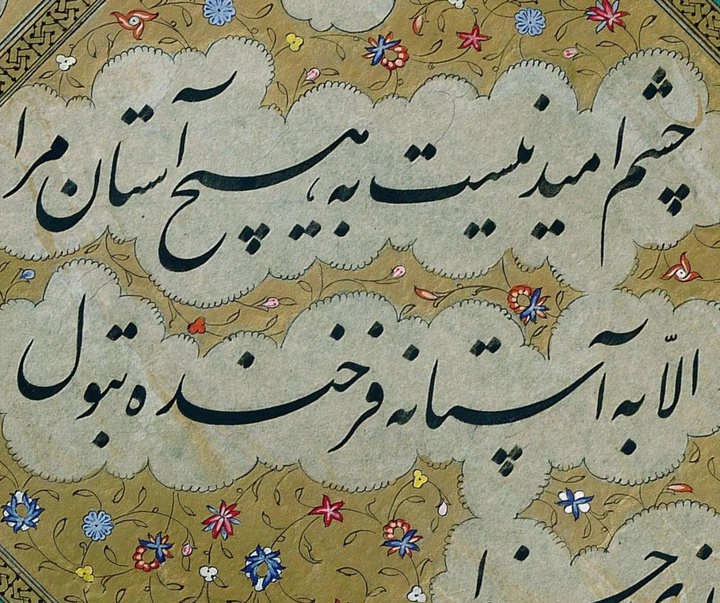 چشم امید نیست به هیچ آستان مرا
الّا به آستانه فرخنده بتول